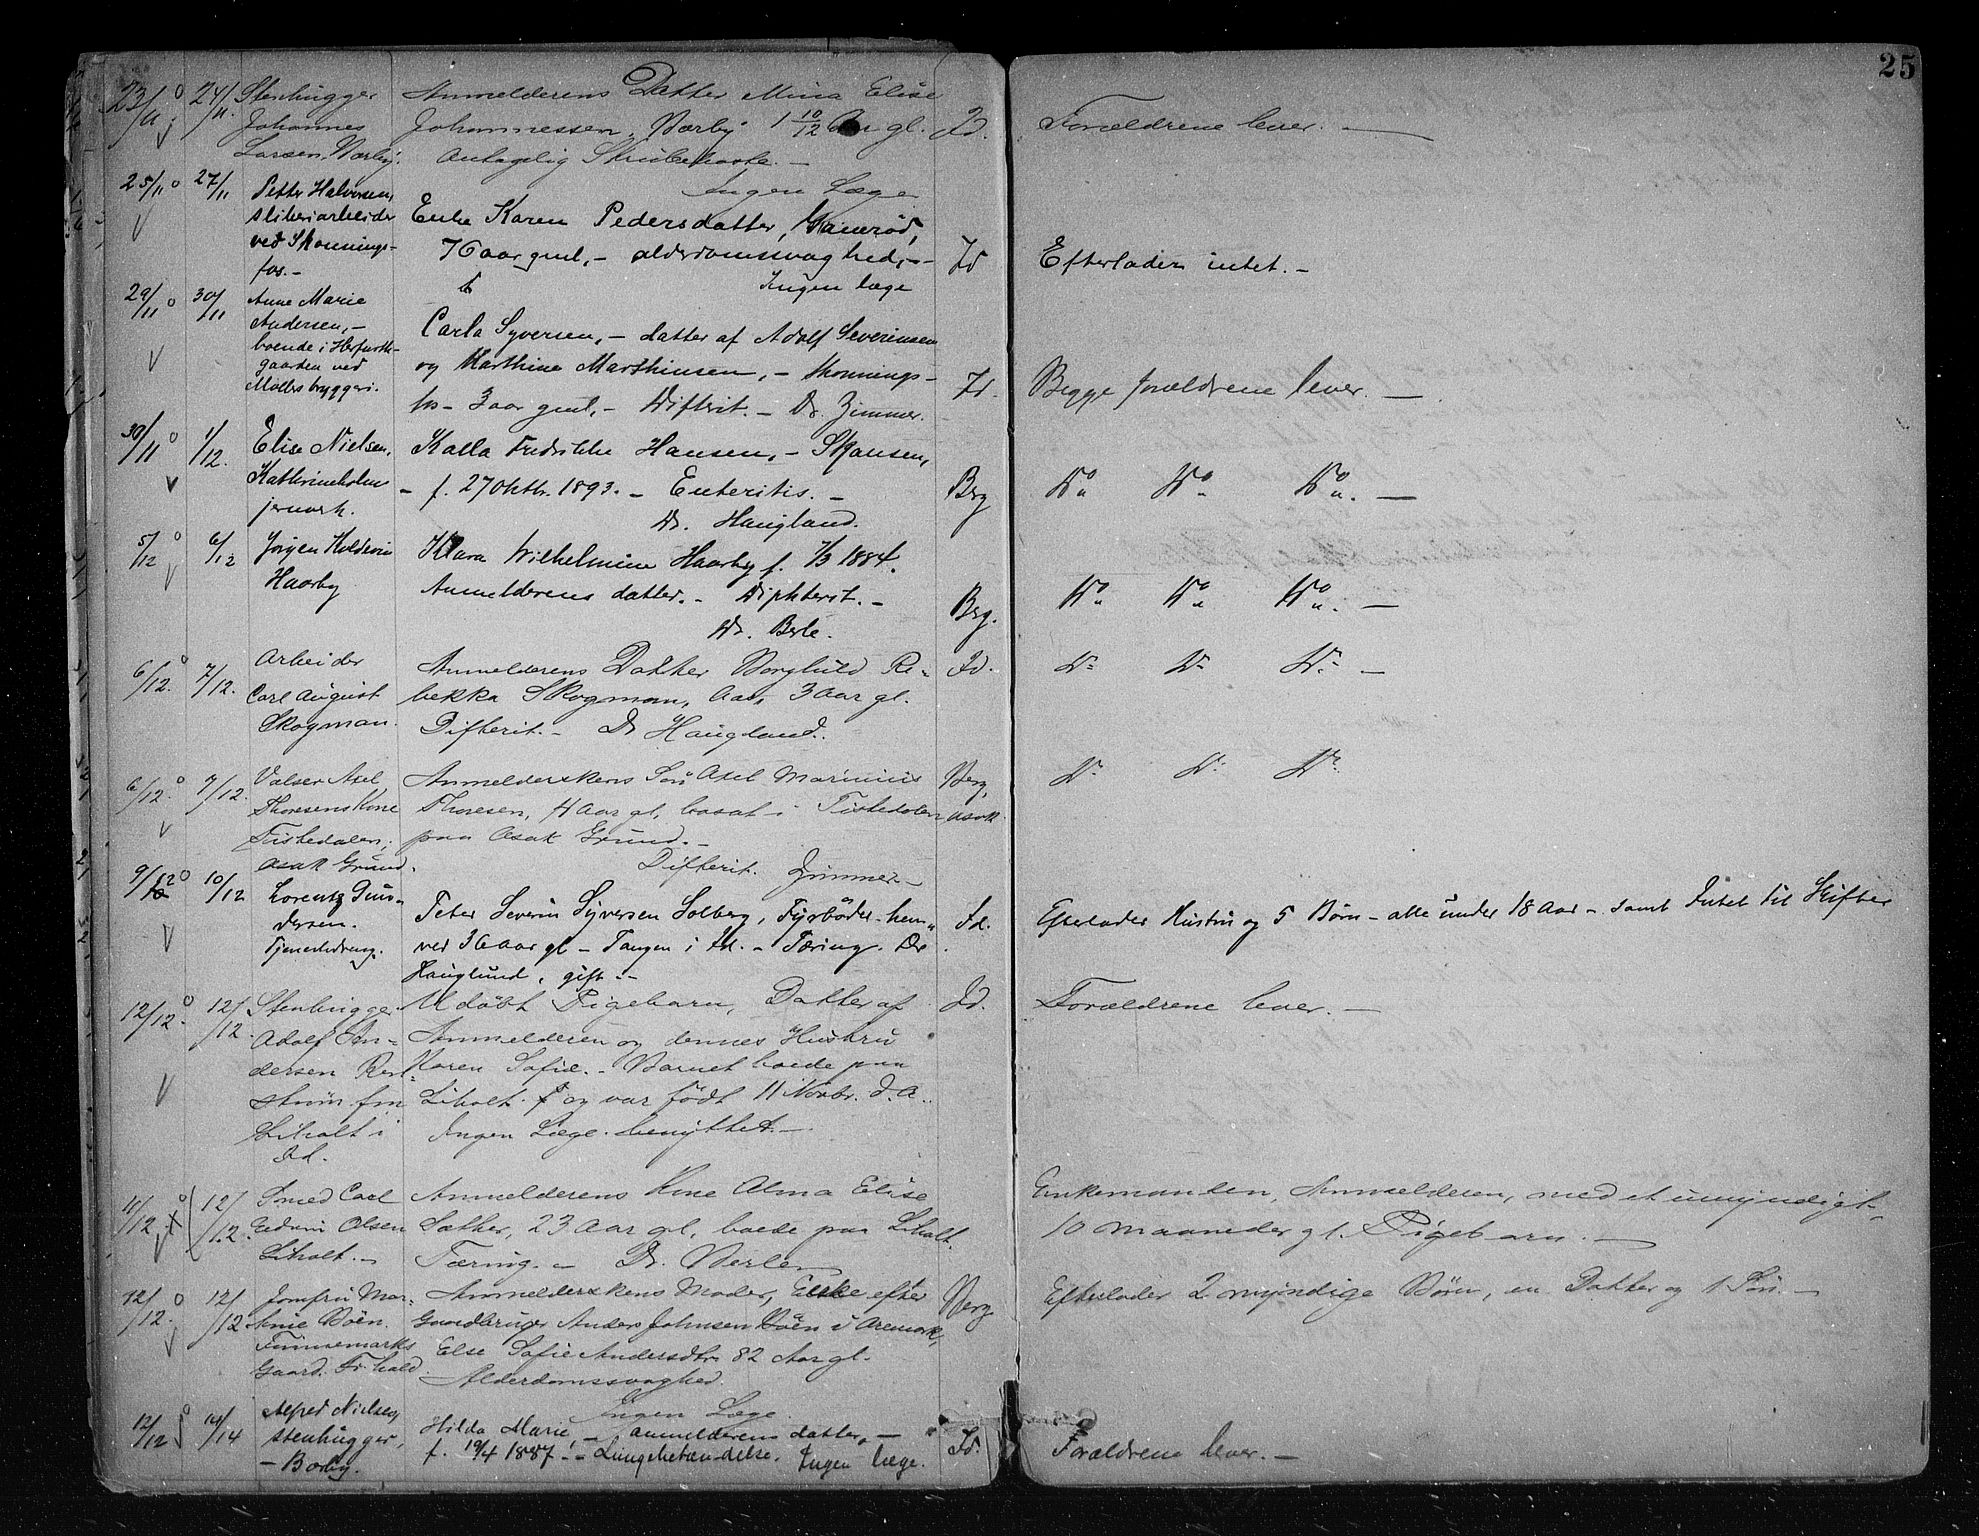 25
23/11 24/11 Stenhugger Anmelderens Datter Mina Elise
Johannes Johannessen, Bærby 1 10/12 Aar gl. Id. Forældrene lever. —
Larsen, Bærby. Antagelig Strubehoste. —
Ingen Læge
25/11 27/11 Petter Halvorsen,
sliberiarbeider Enke Karen Pedersdatter,
ved Skonnings- 76 aar gml, - alderdomssvaghed, - Id Efterlader intet. -
fos. - Ingen læge
29/11 30/11 Anne Marie
Andersen, - Carla Syversen, - datter af Adolf Severinsen
boende i
gaarden ved og Marthine Marthinsen, - Skonnings-
Mølles bryggeri. fos - 3 aar gml, - Difterit. - Dr. Zimmer. Id. Begge forældrene lever. —
30/11 1/12. Elise Nielsen, Kalla Fredrikke Hansen, - Skansen,
Kathrineholm - f. 27 Oktbr. 1893. - Enteritis. - Berg Do Do Do. —
jernverk. Dr. Haugland.
5/12 6/12 Jørgen Haldorin Klara Wilhelmine Haarby f. 1/3 1884.
Haarby Anmelderens datter. - Diphterit. - Berg. Do Do Do. —
Dr. Berle.
6/12. 7/12. Arbeider Anmelderens Datter Borghild Re- Id. Do Do Do. —
Carl August bekka Skogman, Aas, 3 Aar gl.
Skogman. Difterit. - Dr Haugland.
6/12. 7/12. Valser Axel Anmelderskens Søn Axel Marinius Berg, Do Do Do.
Thoresens Kone Thoresen, 4 Aar gl, bosat i Tistedalen Asak
Tistedalen, paa Asak Grund. -
Asak Grund. Difterit. Zimmer -
9/12 10/12 Lorentz Gun-
dersen. Peter Severin Syversen Solberg, Fyrbøder, Id. Efterlader Hustru og 5 Børn - alle under 18 Aar - samt Intet til Skifter
Tjenestedreng. ved 36 aar gl - Tangen i Id. - Tæring. Dr
Hauglund, gift. -
12/12. 12/12. Stenhugger Udøbt Pigebarn, Datter af Id. Forældrene lever. —
Adolf An- Anmelderen og dennes Hustru
dersen Ren- Karen Sofie. - Barnet boede paa
strøm fra Liholt og var født 11 Novbr. d. A.
Liholt i Ingen Læge benyttet. —
Id.
11/12. 12/12. Smed Carl Anmelderens Kone Alma Elise Enkemanden, Anmelderen, med et umyndigt
Edvin Olsen Sæther, 23 Aar gl, boede paa Liholt. 10 Maaneder gl. Pigebarn. —
Liholt. - Tæring. - Dr. Berle
12/12. 12/12 Jomfru Mar- Anmelderskens Moder, Enke efter Berg Efterlader 2 myndige Børn, en Datter og 1 Søn. -
thie Bøen. Gaardbruger Anders Johnsen Bøen i Aremark,
Finnemarks Else Sofie Andersdtr. 82 Aar gl.
Gaard. Fr.hald. Alderdomssvaghed.
Ingen Læge.
12/12 14/14 Alfred Nielsen,
stenhugger, Hilda Marie, - anmelderens datter, - Id. Forældrene lever. —
- Bærby. f. 19/4 1887. - Lungebetændelse. Ingen læge.